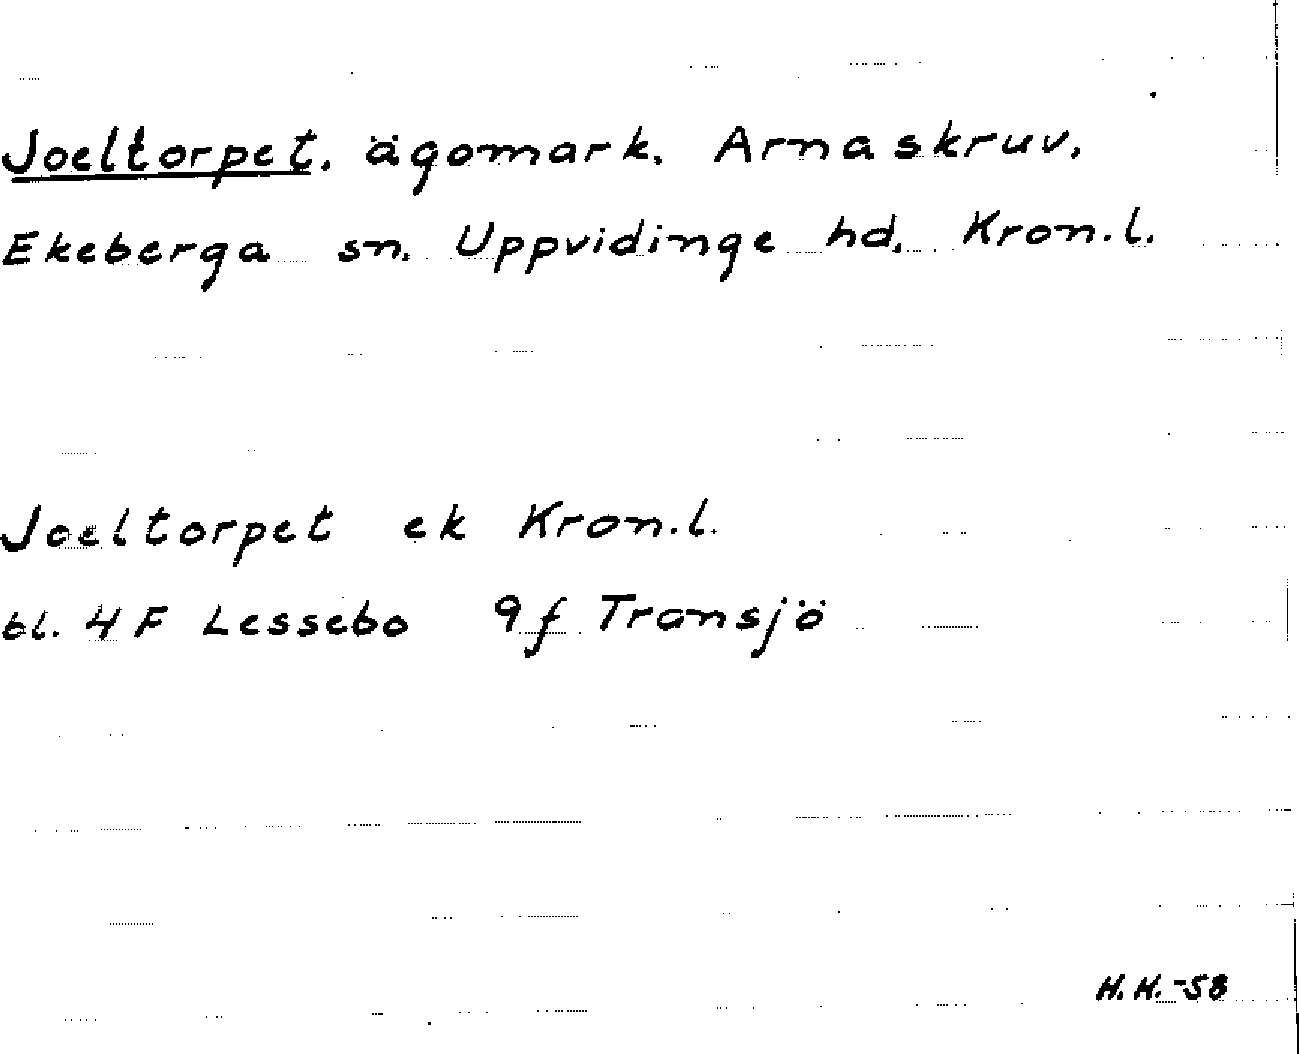 Joeltorpet, ägomark, Arnaskruv,
Ekeberga sn. Uppvidinge hd. Kron.l.
Joeltorpet ek Kron.l.
bl. 4F Lessebo 9f Transjö
H.H.-58